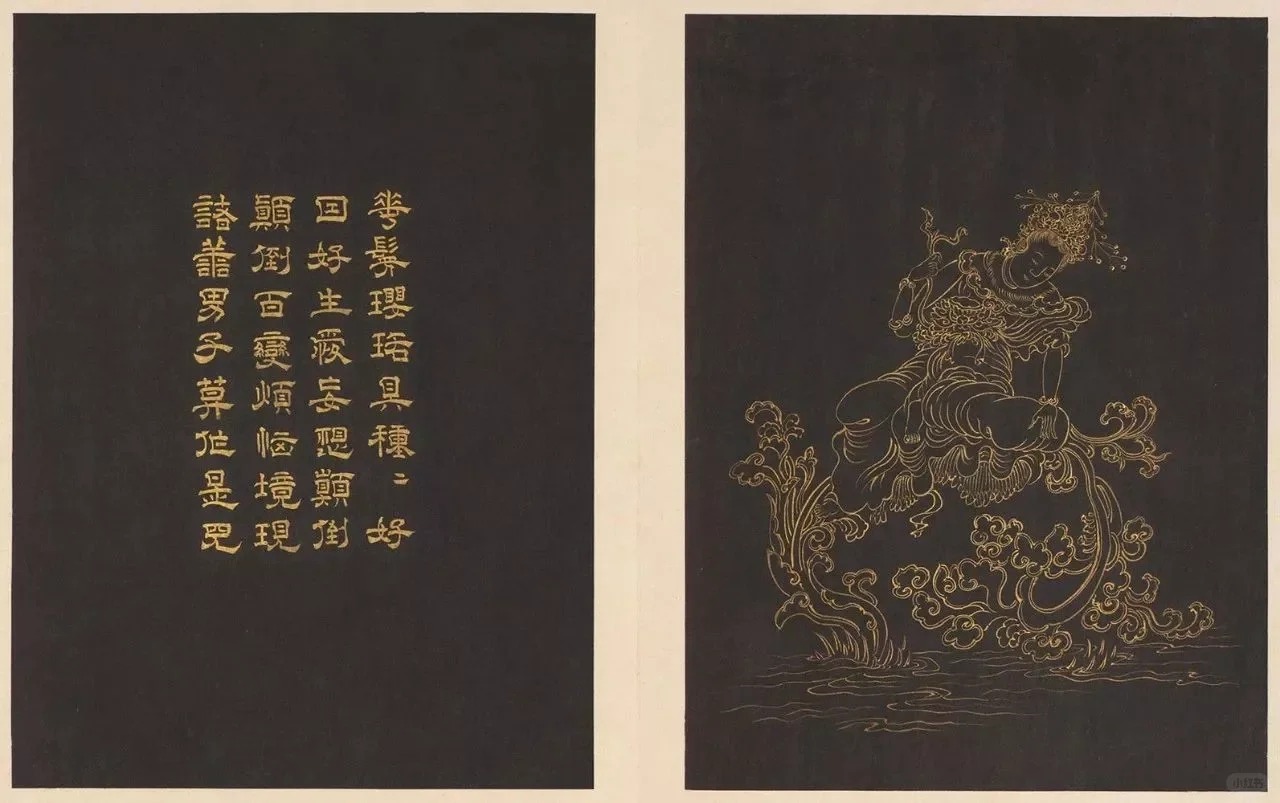 華鬘瓔珞具種〻好
囙好生愛妄想顛倒
顛倒百變煩惱境現
諸善男子莫作是見
小红书